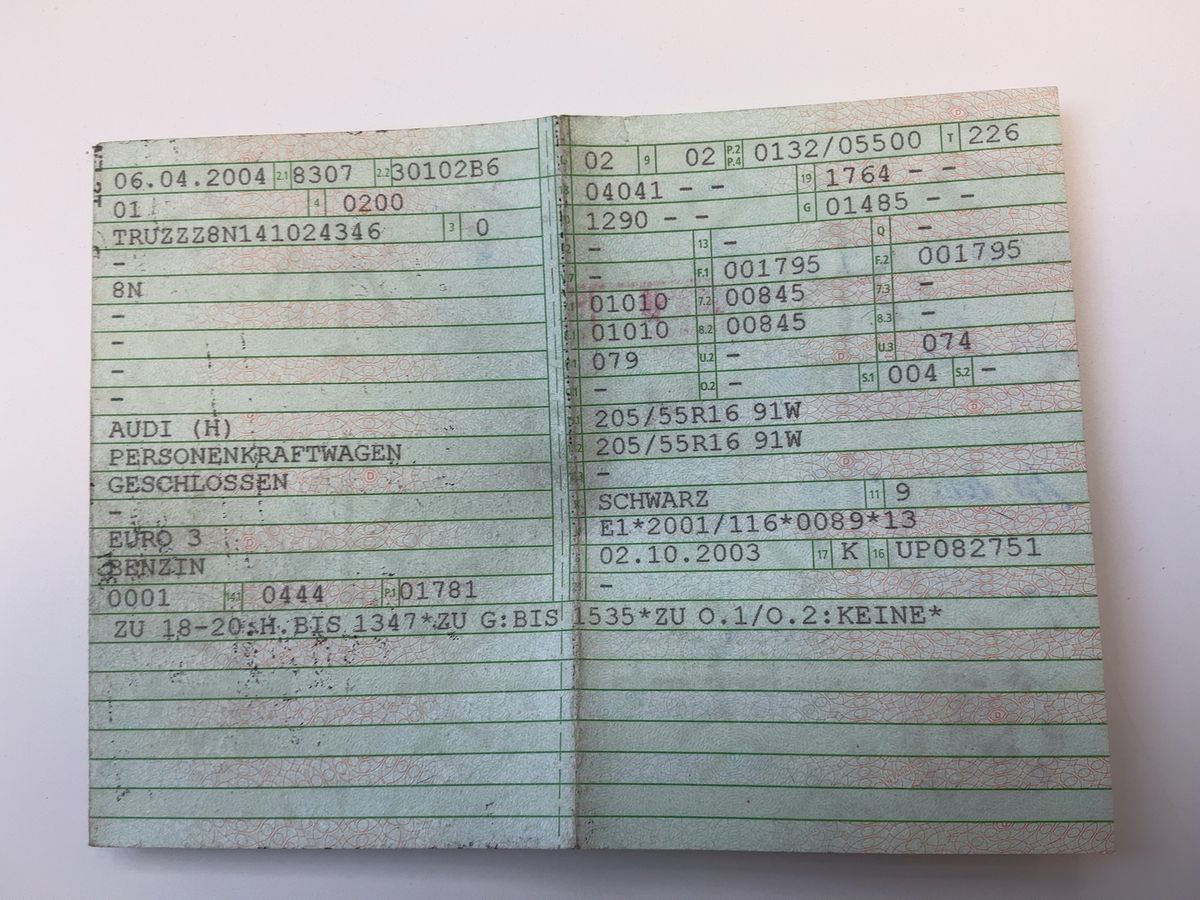 06.04.2004 2.1 8307 2.2 30102B6
01 4 0200
TRUZZZ8N141024346 3 0
–
8N
–
–
–
–
AUDI (H)
PERSONENKRAFTWAGEN
GESCHLOSSEN
–
EURO 3
BENZIN
0001 14.1 0444 P.1 01781
02 9 02 P.2 P.4 0132/05500 T 226
18 04041 – – 19 1764 – –
1290 – – G 01485 – –
– 13 – Q –
– F.1 001795 F.2 001795
01010 7.2 00845 7.3 –
01010 8.2 00845 8.3 –
079 U.2 – U.3 074
– O.2 – S.1 004 S.2 –
205/55R16 91W
205/55R16 91W
–
SCHWARZ 11 9
E1*2001/116*0089*13
02.10.2003 17 K 16 UP082751
–
ZU 18-20:H.BIS 1347*ZU G:BIS 1535*ZU O.1/O.2:KEINE*